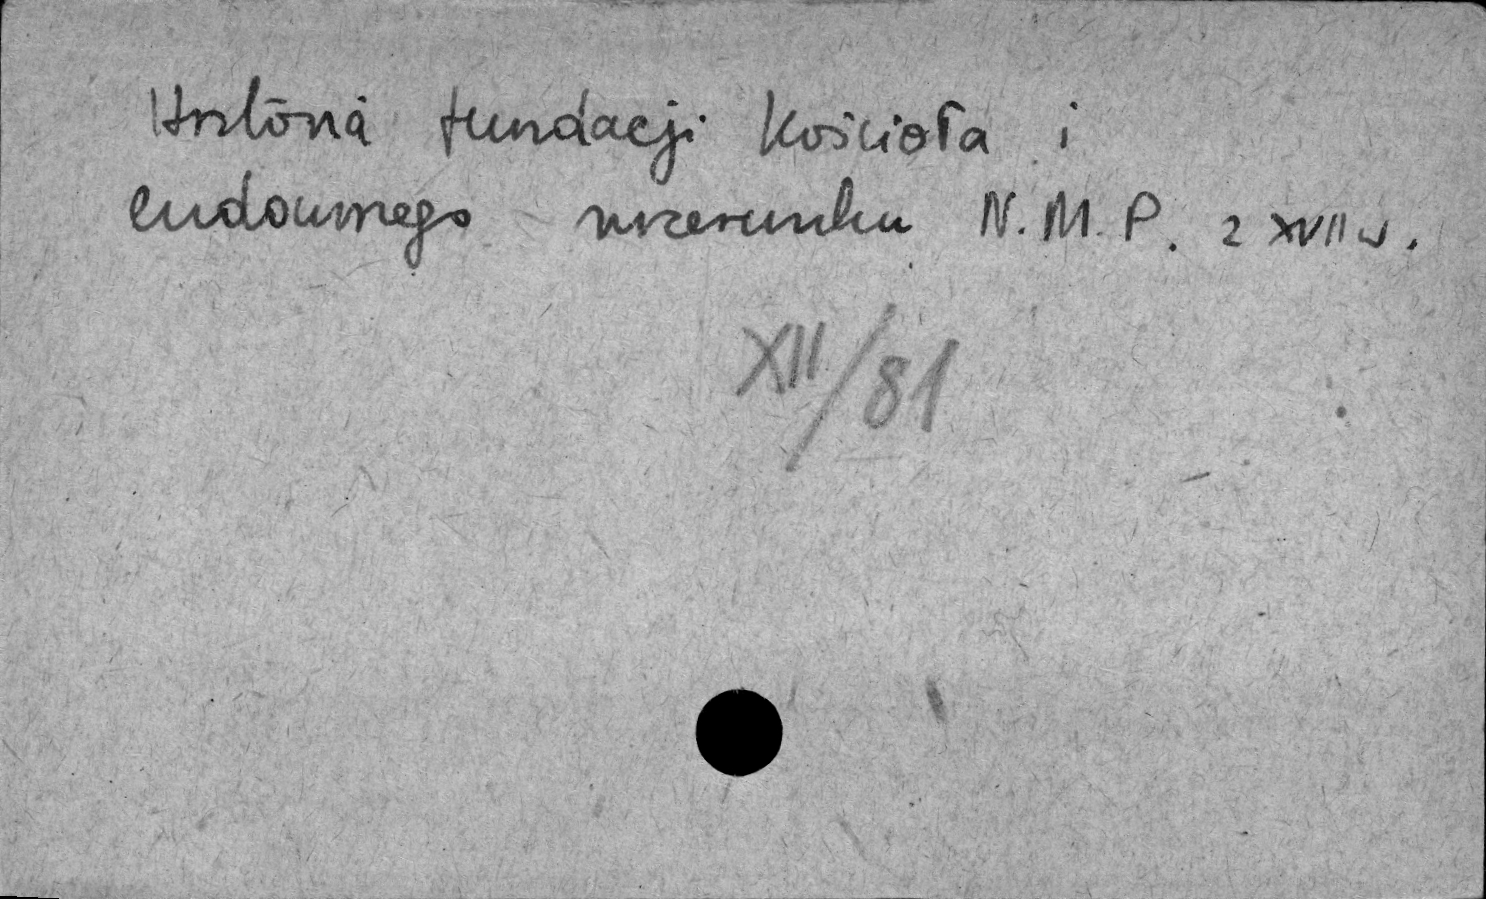 Historia fundacji Kościoła i
cudownego wizerunku N.M.P. z XVII w.
XII/81